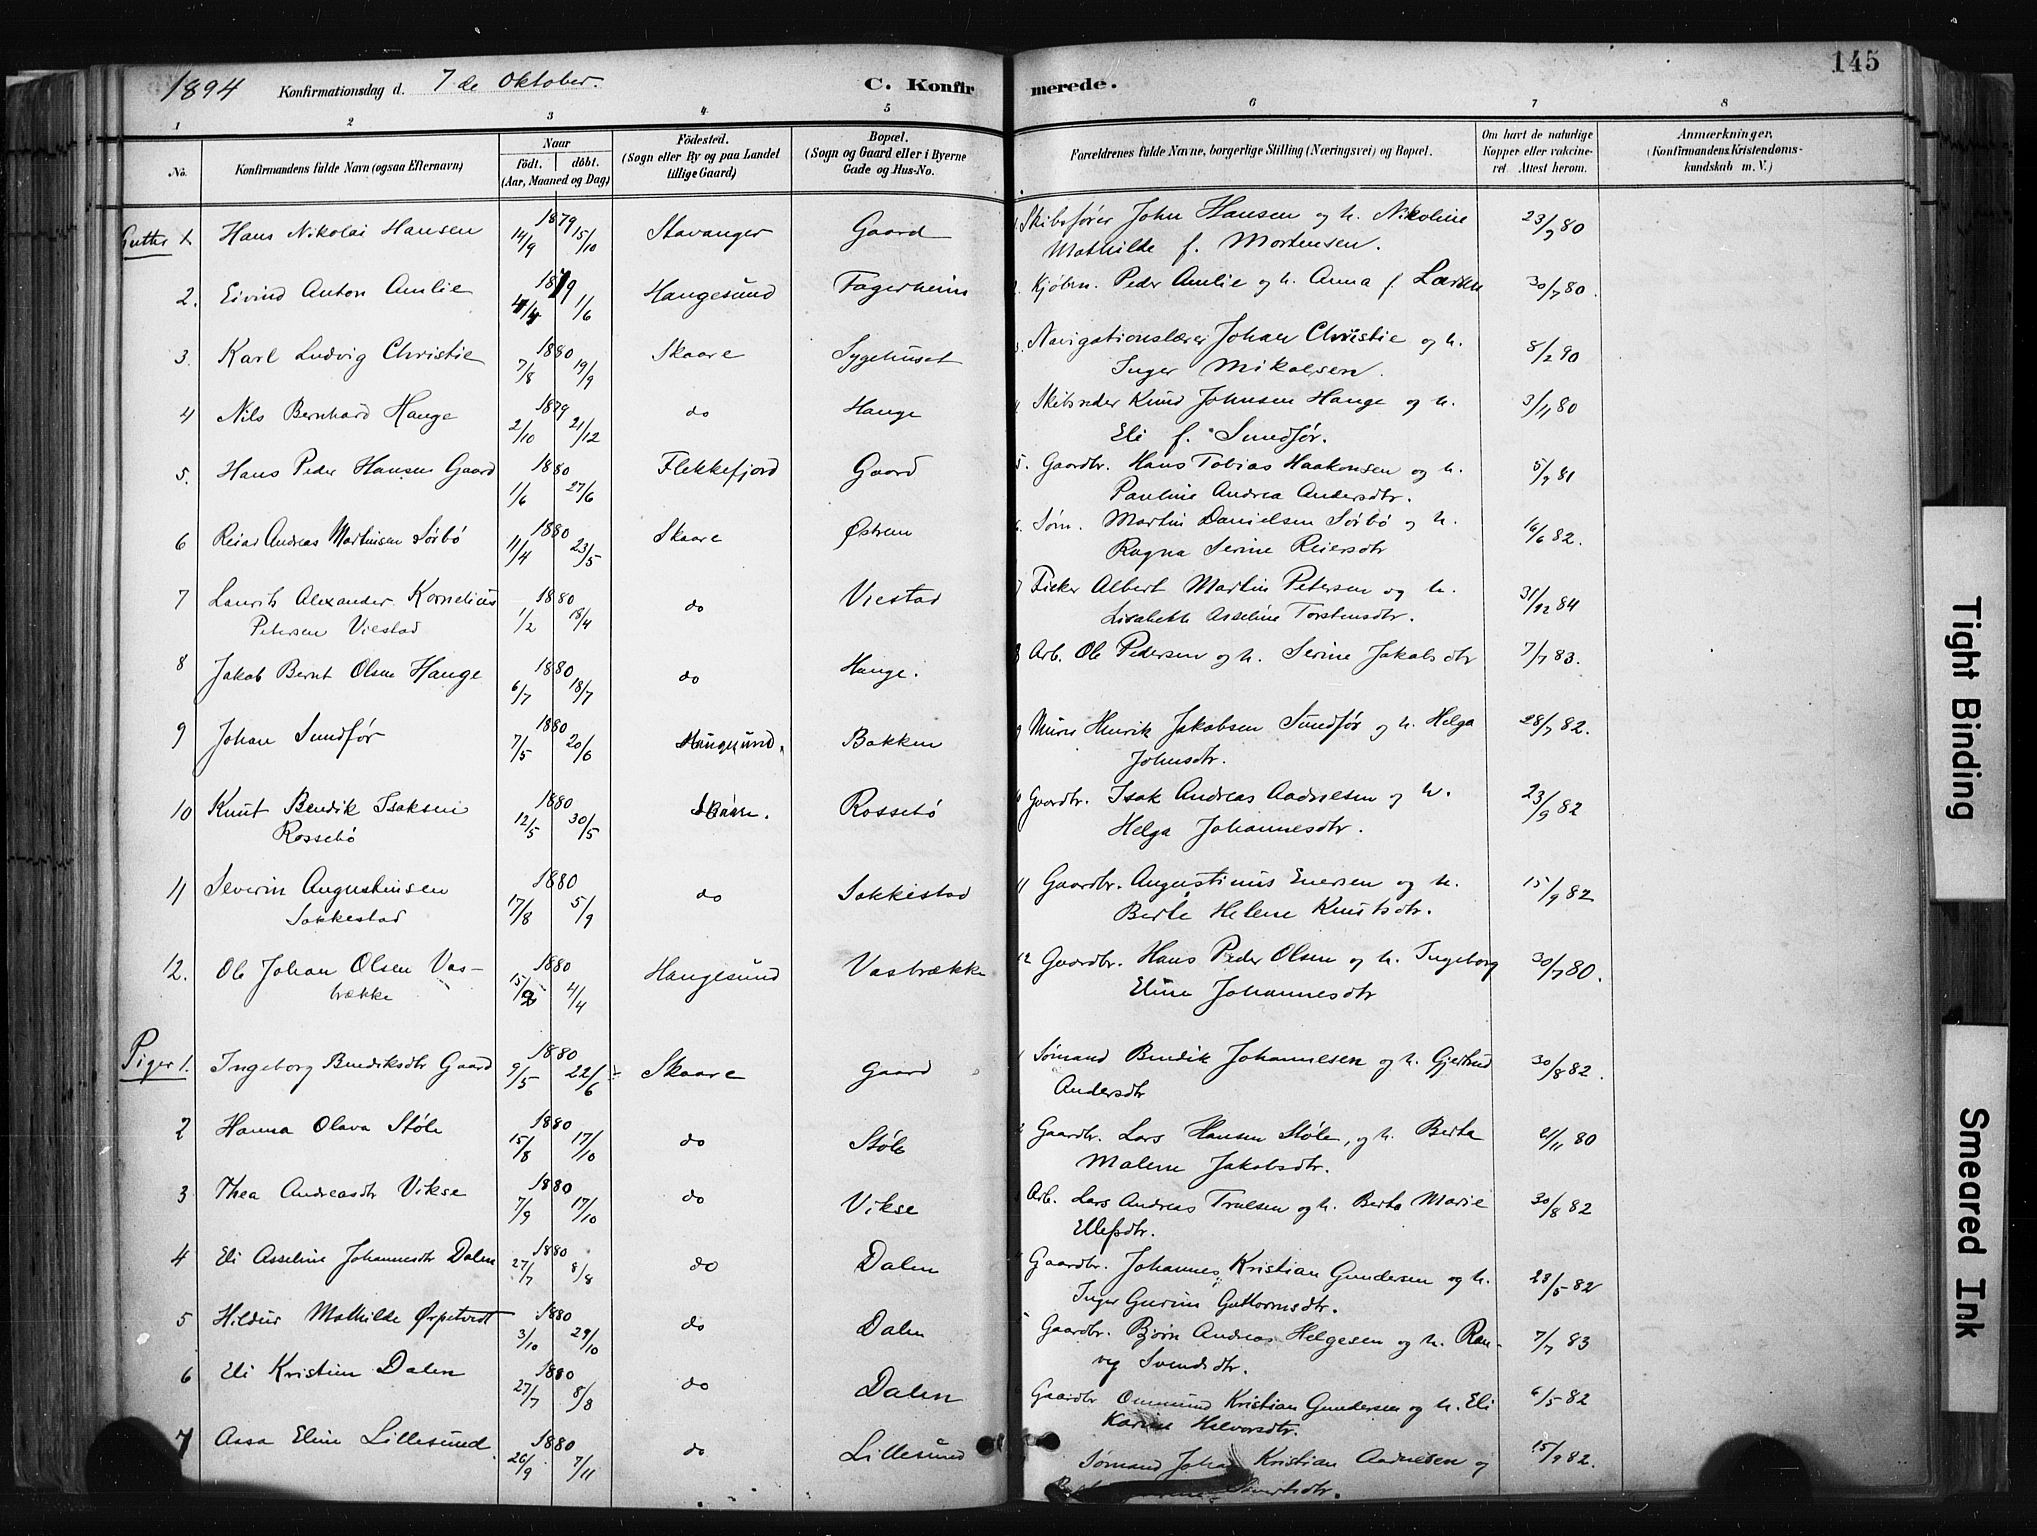 145
1894 Konfirmationsdag d. 7de Oktober. C. Konfirmerede.
1 2 3 4 5 6 7 8
No. Konfirmandens fulde Navn (ogsaa Efternavn) Naar født. døbt. (Aar, Maaned og Dag) Födested. (Sogn eller By og paa Landet tillige Gaard) Bopæl. (Sogn og Gaard eller i Byerne Gade og Hus-No. Forældrenes fulde Navne, borgerlige Stilling (Næringsvei) og Bopæl. Om havt de naturlige Kopper eller vakcineret. Attest herom. Anmærkninger, (Konfirmandens Kristendomskundskab m. V.)
Gutter 1. Hans Nikolai Hansen 1879 14/9 15/10 Stavanger Gaard 1. Skibsfører John Hansen og h. Nikoline 23/9 80
Mathilde f. Mortensen.
2. Eivind Anton Amlie 1879 4/4 1/6 Haugesund Fagerheim 2. Kjøbm. Peder Amlie og h. Anna f. Larsen 30/7 80.
3. Karl Ludvig Christie 1880 7/8 19/9 Skaare Sygehuset 3. Navigationslærer Johan Christie og h. 8/2 90
Inger Mikalsen.
4 Nils Bernhard Hauge 1879 2/10 21/12 do Hauge 4 Skibsreder Knud Johnsen Hauge og h. 3/11 80
Eli f. Sundfør.
5. Hans Peder Hansen Gaard 1880 1/6 27/6 Flekkefjord Gaard 5. Gaardbr. Hans Tobias Haakonsen og h. 5/9 81
Pauline Andrea Andersdtr.
6 Reiar Andreas Martinsen Sørbø 1880 11/4 23/5 Skaare Østrem 6. Søm. Martin Danielsen Sørbø og h. 16/6 82.
Ragna Serine Reiersdtr
7 Laurits Alexander Kornelius 1880 1/2 18/4 do Viestad 7 Fisker Albert Martin Petersen og h. 31/12 84
Petersen Viestad Lisabeth Asseline Torstensdtr.
8 Jakob Bernt Olsen Hauge 1880 6/7 18/7 do Hauge. 8 Arb. Ole Pedersen og h. Serine Jakobsdtr 7/7 83.
9 Johan Sundfør 1880 7/5 20/6 Haugesund. Bakken 9 Murer Henrik Jakobsen Sundfør og h. Helga 28/7 82.
Johnsdtr.
10 Knut Bendik Isaksen 1880 12/5 30/5 Skaare. Rossebø 10 Gaardbr. Isak Andreas Aadnesen og h. 23/9 82
Rossebø Helga Johannesdtr.
11 Severin Augustinsen 1880 17/8 5/9 do Sakkestad 11 Gaardbr. Augustinus Enersen og h. 15/9 82
Sakkestad Berte Helene Knutsdtr.
12. Ole Johan Olsen Vas- 1880 15/2 4/4 Haugesund Vasbrække 12 Gaardbr. Hans Peder Olsen og h. Ingeborg 30/7 80.
brække Eline Johannesdtr
Piger 1. Ingeborg Bendiksdtr Gaard 1880 9/5 22/6 Skaare Gaard 1 Sømand Bendik Johannesen og h. Gjertrud 30/8 82.
Andersdtr
2 Hanna Olava Støle 1880 15/8 17/10 do Støle 2 Gaardbr. Lars Hansen Støle, og h. Berta 2/11 80
Malene Jakobsdtr.
3 Thea Andreasdtr Vikse 1880 7/9 17/10 do Vikse 3 Arb. Lars Andreas Truelsen og h. Berta Marie 30/8 82
Ellefsdtr.
4 Eli Asseline Johannesdtr Dalen 1880 27/7 8/8 do Dalen 4 Gaardbr. Johannes Kristian Gundersen og h. 28/5 82
Inger Gurine Guttormsdtr.
5 Hildur Mathilde Ørpetvedt 1880 3/10 29/10 do Dalen 5 Gaardbr. Bjørn Andreas Helgesen og h. Ran- 7/7 83
veig Svendsdtr.
6 Eli Kristine Dalen 1880 27/7 8/8 do Dalen Gaardbr Ommund Kristian Gundersen og h. Eli 6/5 82
Karine Helvorsdtr.
7 Assa Eline Lillesund 1880 26/9 7/11 do Lillesund Sømand Johan Kristian Aadnesen og 15/9 82.
Sivertsdtr.
Tight Binding
Smeared Ink